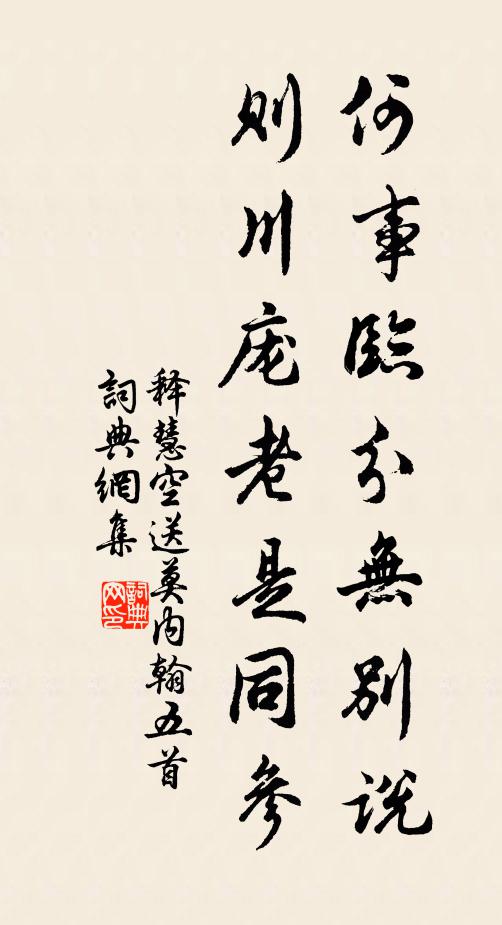 何事臨分無別說
则川庞老是同參
释慧空送莫内翰五首
詞典網集
詞典
网印